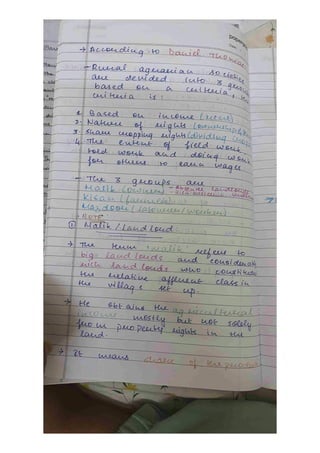 → According to Daniel Thorner
- Rural agrarian societies
are devided into 3 groups
based on a criteria, the
criteria is :
1. Based on income (rent)
2. Nature of rights
3. Share cropping rights (dividing
4. The extent of field work
told work and doing work
for others to earn wages
- The 3 groups are
Malik (owner)
Kisan (farmer)
Mazdoor (labourer/worker)
NOTE
① Malik / Land Lord
→ The term malik refers to
big land lords and considerate
rich land lords who constitute
the relative affluent class in
the village set up.
→ He obtains the agricultural
income mostly but not solely
from property rights in the
land.
→ It means share of the produce